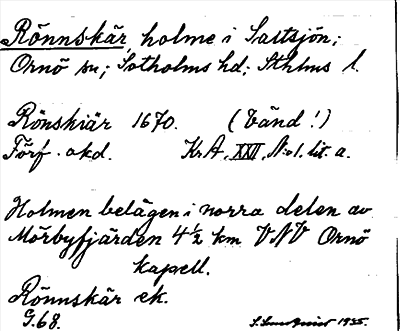 Rönnskär, holme i Saltsjön;
Ornö sn; Sotholms hd; Sthlms l.
Rönskiär 1670. (Bänd!)
Förf. okd. Kr.A, XXII, N:o 1. lit. a.
Holmen belägen i norra delen av
Mörbyfjärden 4 1/2 km VNV Ornö
kapell.
Rönnskär ek.
G.68. 1935.